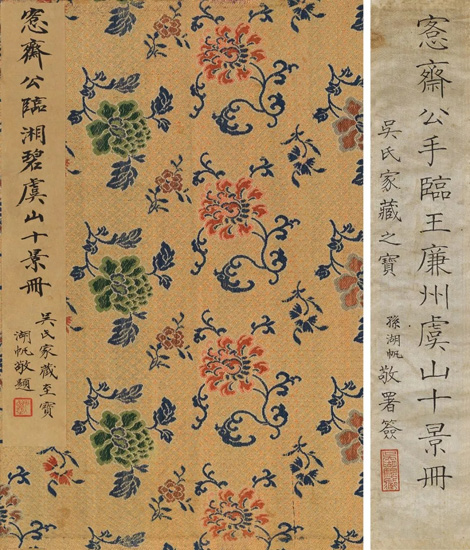 愙齋公臨湘碧虞山十景冊
吳氏家藏至寶
湖帆敬題
愙齋公手臨王廉州虞山十景冊
吳氏家藏之寶
孫湖帆敬署簽